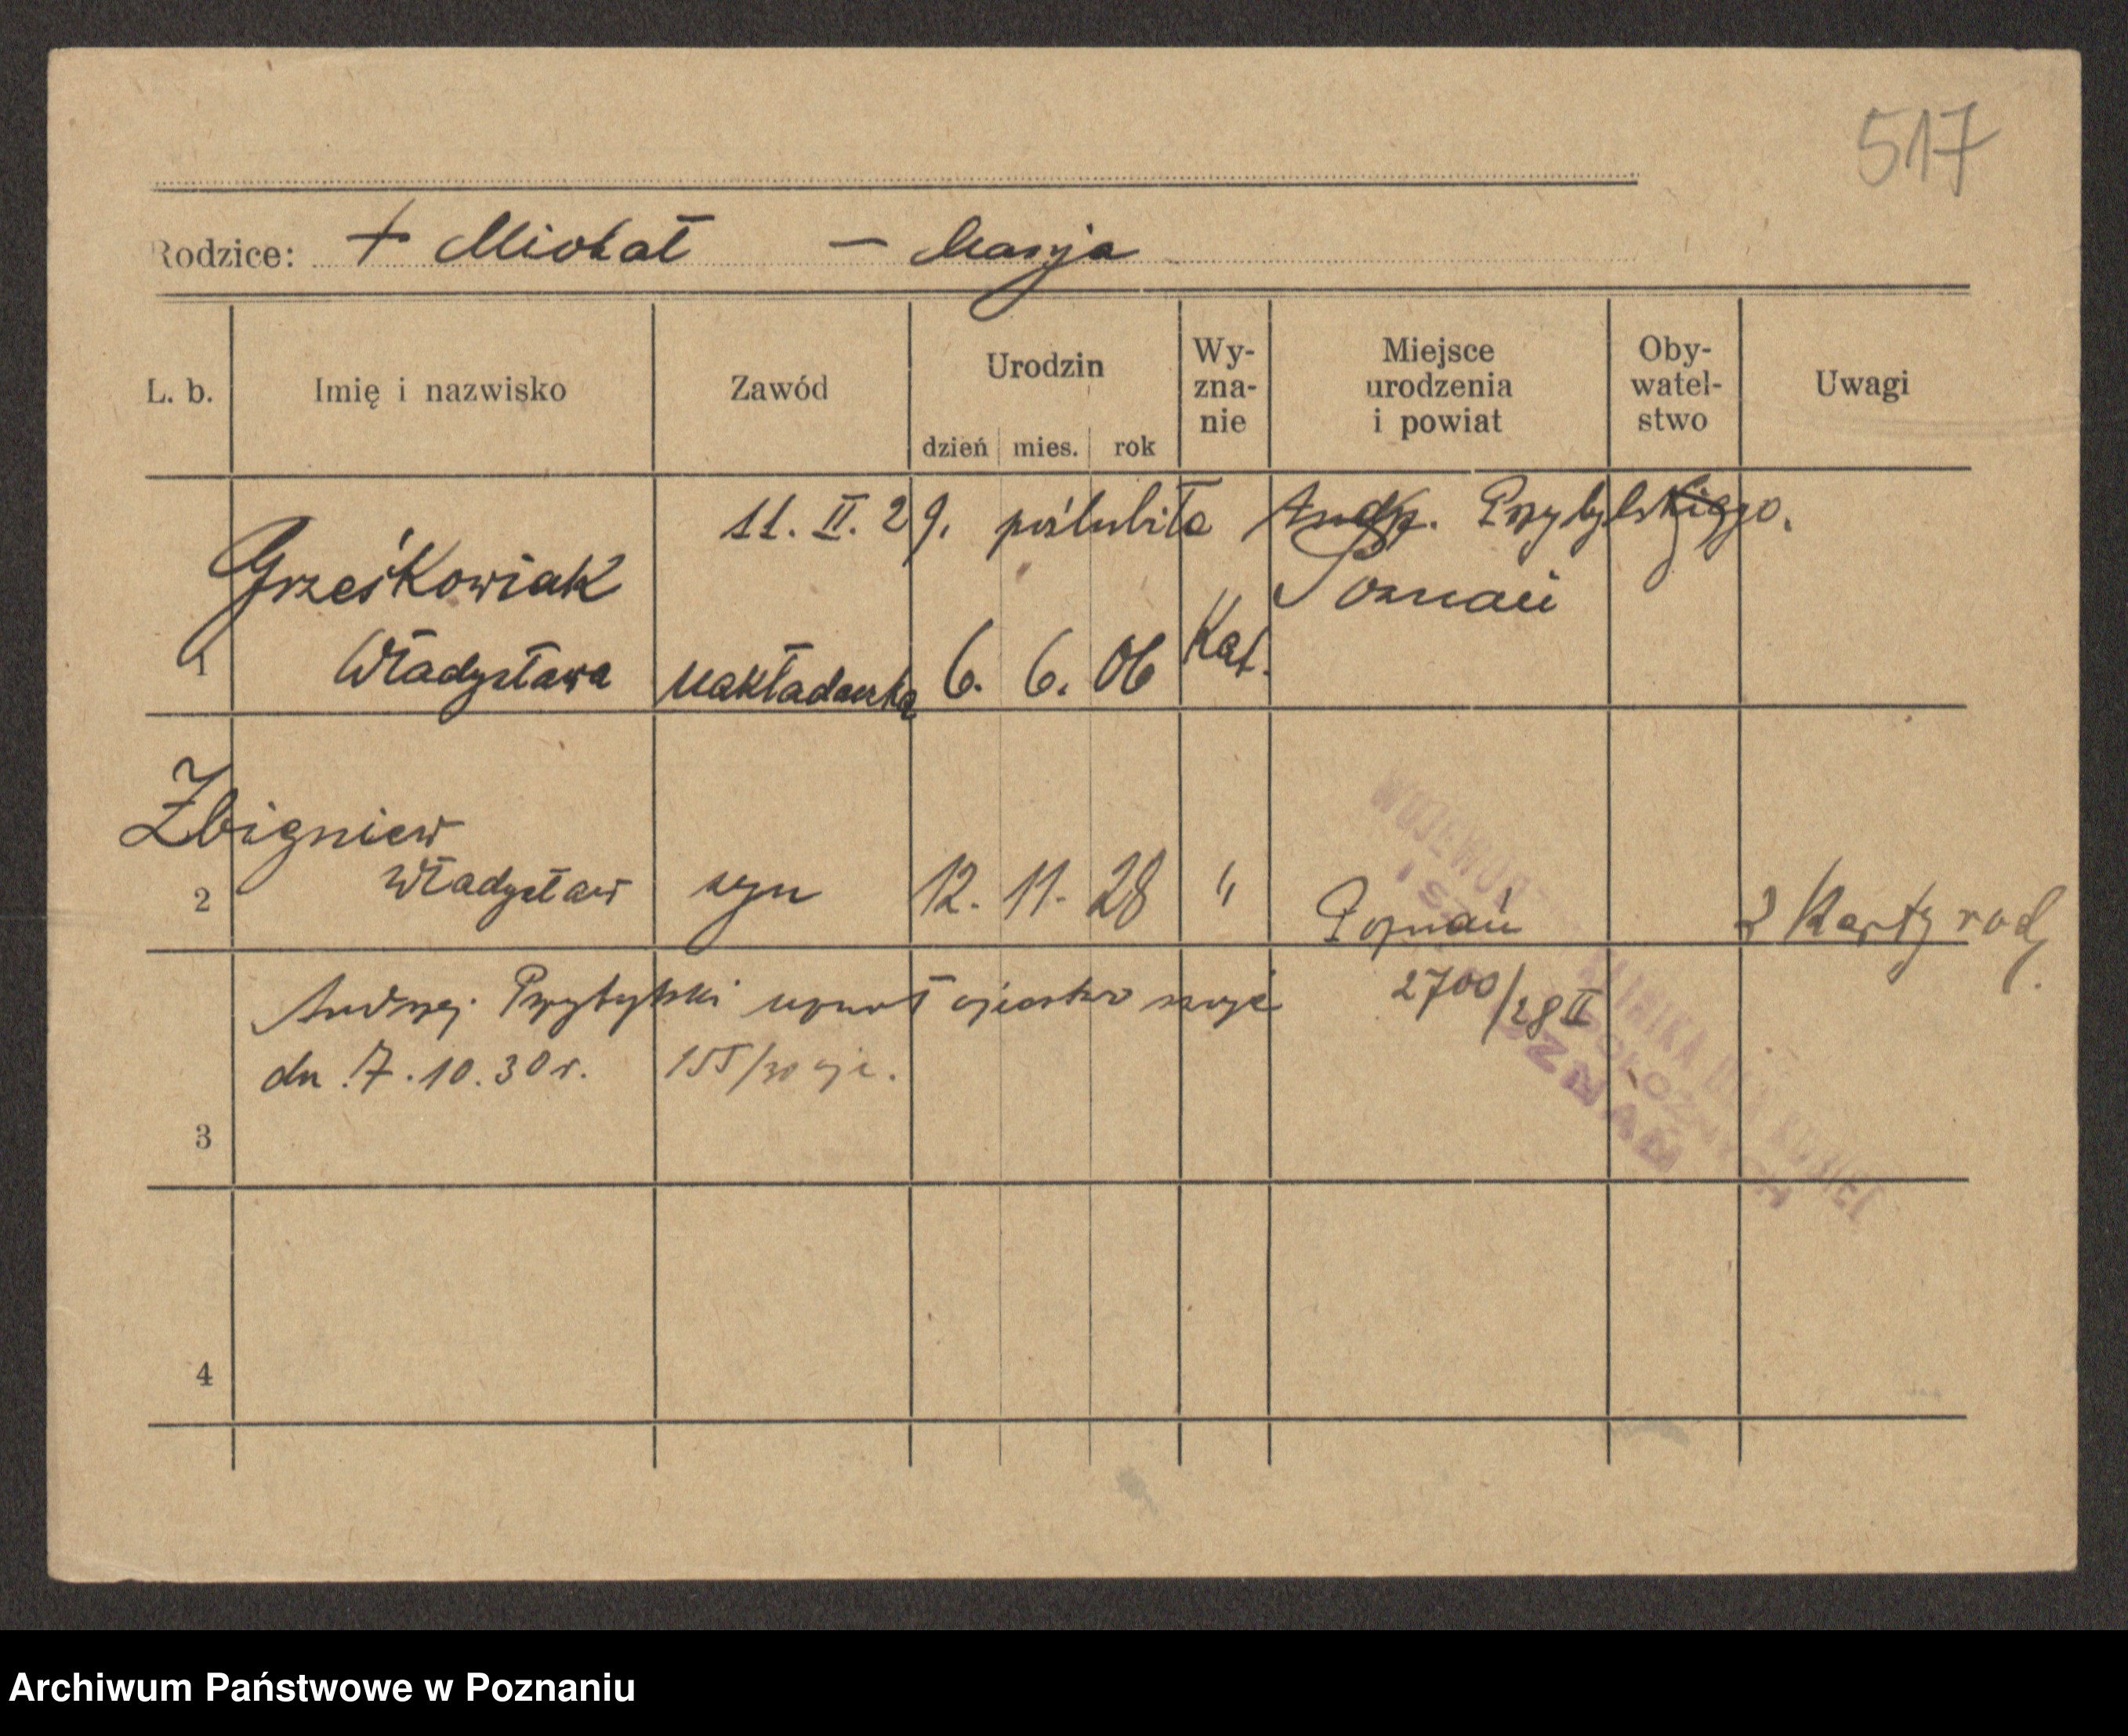 517
Rodzice: + Michał — Marja
L. b. Imię i nazwisko Zawód Urodzin dzień mies. rok Wy-zna-nie Miejsce urodzenia i powiat Oby-watel-stwo Uwagi
11. II. 29. poślubiła Andrz. Przybylskiego.
Grześkowiak Poznań
1 Władysława nakładaczka 6. 6. 06 Kat.
Zbigniew
2 Władysław syn 12. 11. 28 " Poznań 2 Karty rodz.
Andrzej Przybylski uznał ojcostwo swoje 2700/28 II
dn. 7.10.30 r. 155/30
3
4
WOJEWÓDZ
KLINIKA DLA KOBIET
POŁOŻNYCH
POZNAŃ
Archiwum Państwowe w Poznaniu